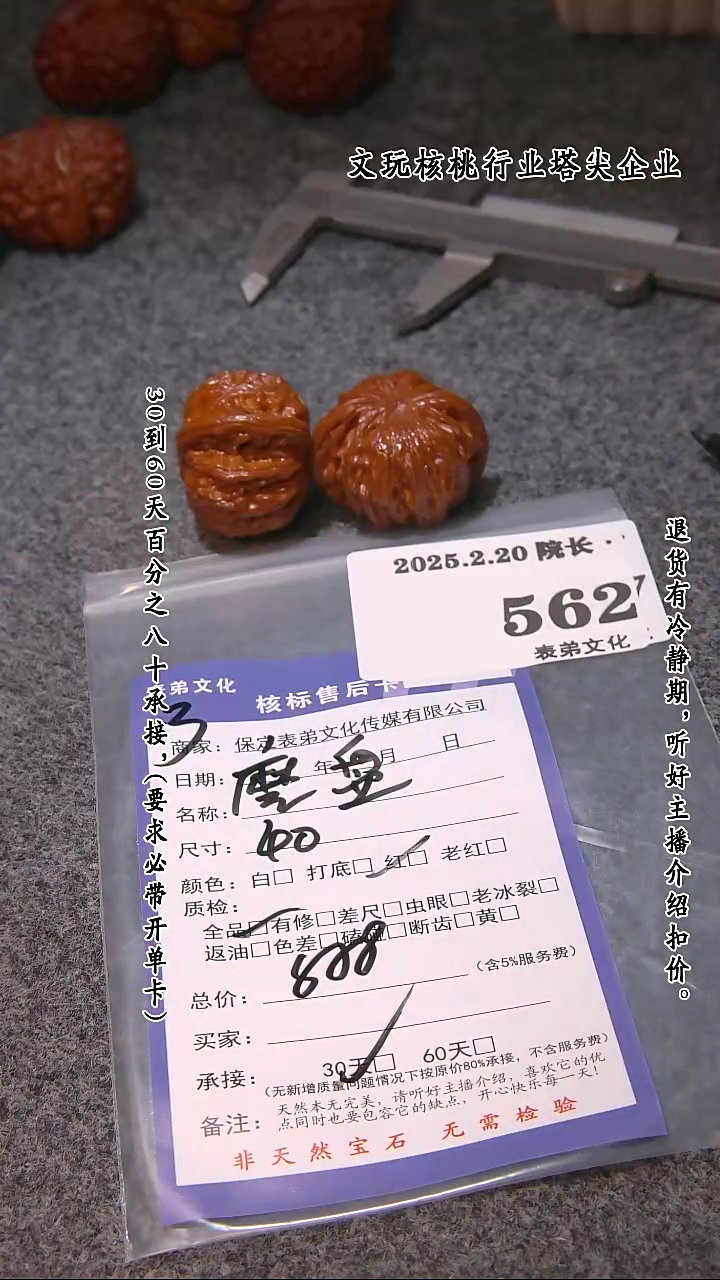 文玩核桃行业塔尖企业
30到60天百分之八十承接，（要求必带开单卡）
退货有冷静期，听好主播介绍扣价。
2025.2.20 院长·
5627
表弟文化
表弟文化
核标售后卡
3
商家：保定表弟文化传媒有限公司
日期： 年 月 日
名称：磨盘
尺寸：40
颜色：白□ 打底□ 红□ 老红□
质检：
全品□有修□差尺□虫眼□老冰裂□
返油□色差□磕碰□断齿□黄□
总价：888（含5%服务费）
买家：
承接：30天□ 60天□
（无新增质量问题情况下按原价80%承接，不含服务费）
备注：天然本无完美，请听好主播介绍，喜欢它的优
点同时也要包容它的缺点，开心快乐每一天！
非天然宝石 无需检验